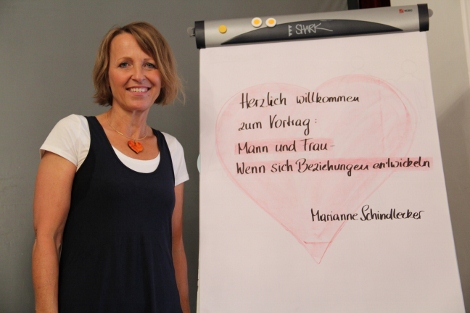 E STARK
Herzlich willkommen
zum Vortrag:
Mann und Frau -
Wenn sich Beziehungen entwickeln
Marianne Schindlecker